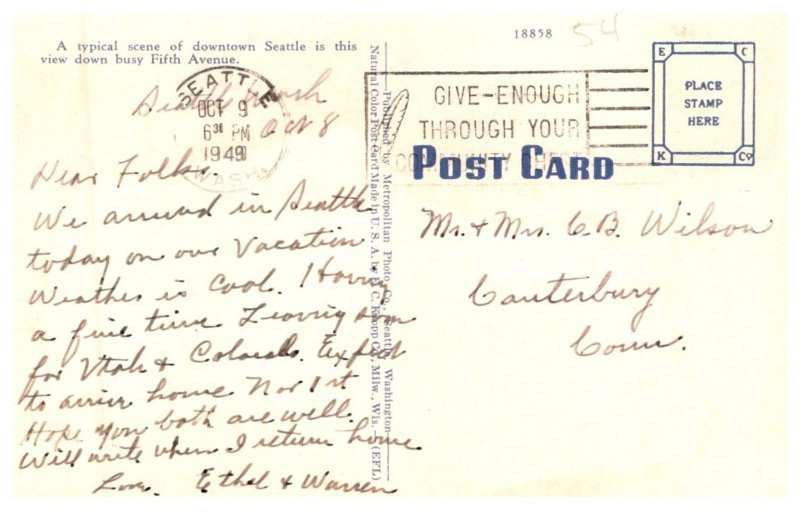 18858
54
A typical scene of downtown Seattle is this
view down busy Fifth Avenue.
SEATTLE
OCT 9
6 30 PM
1949
WASH.
GIVE-ENOUGH
THROUGH YOUR
COMMUNITY CHEST
E C
K Co
PLACE
STAMP
HERE
POST CARD
Published by Metropolitan Photo Co., Seattle, Washington
Natural Color Post Card Made in U. S. A. by E. C. Kropp Co., Milw., Wis. (EFL)
Seattle Wash
Oct 8
Dear Folks.
We arrived in Seattle
today on our Vacation
Weather is Cool. Having
a fine time Leaving soon
for Utah & Colorado. Expect
to arrive home Nov 1st
Hope you both are well.
Will write when I return home
Love. Ethel & Warren
Mr. & Mrs. C.B. Wilson
Canterbury
Conn.